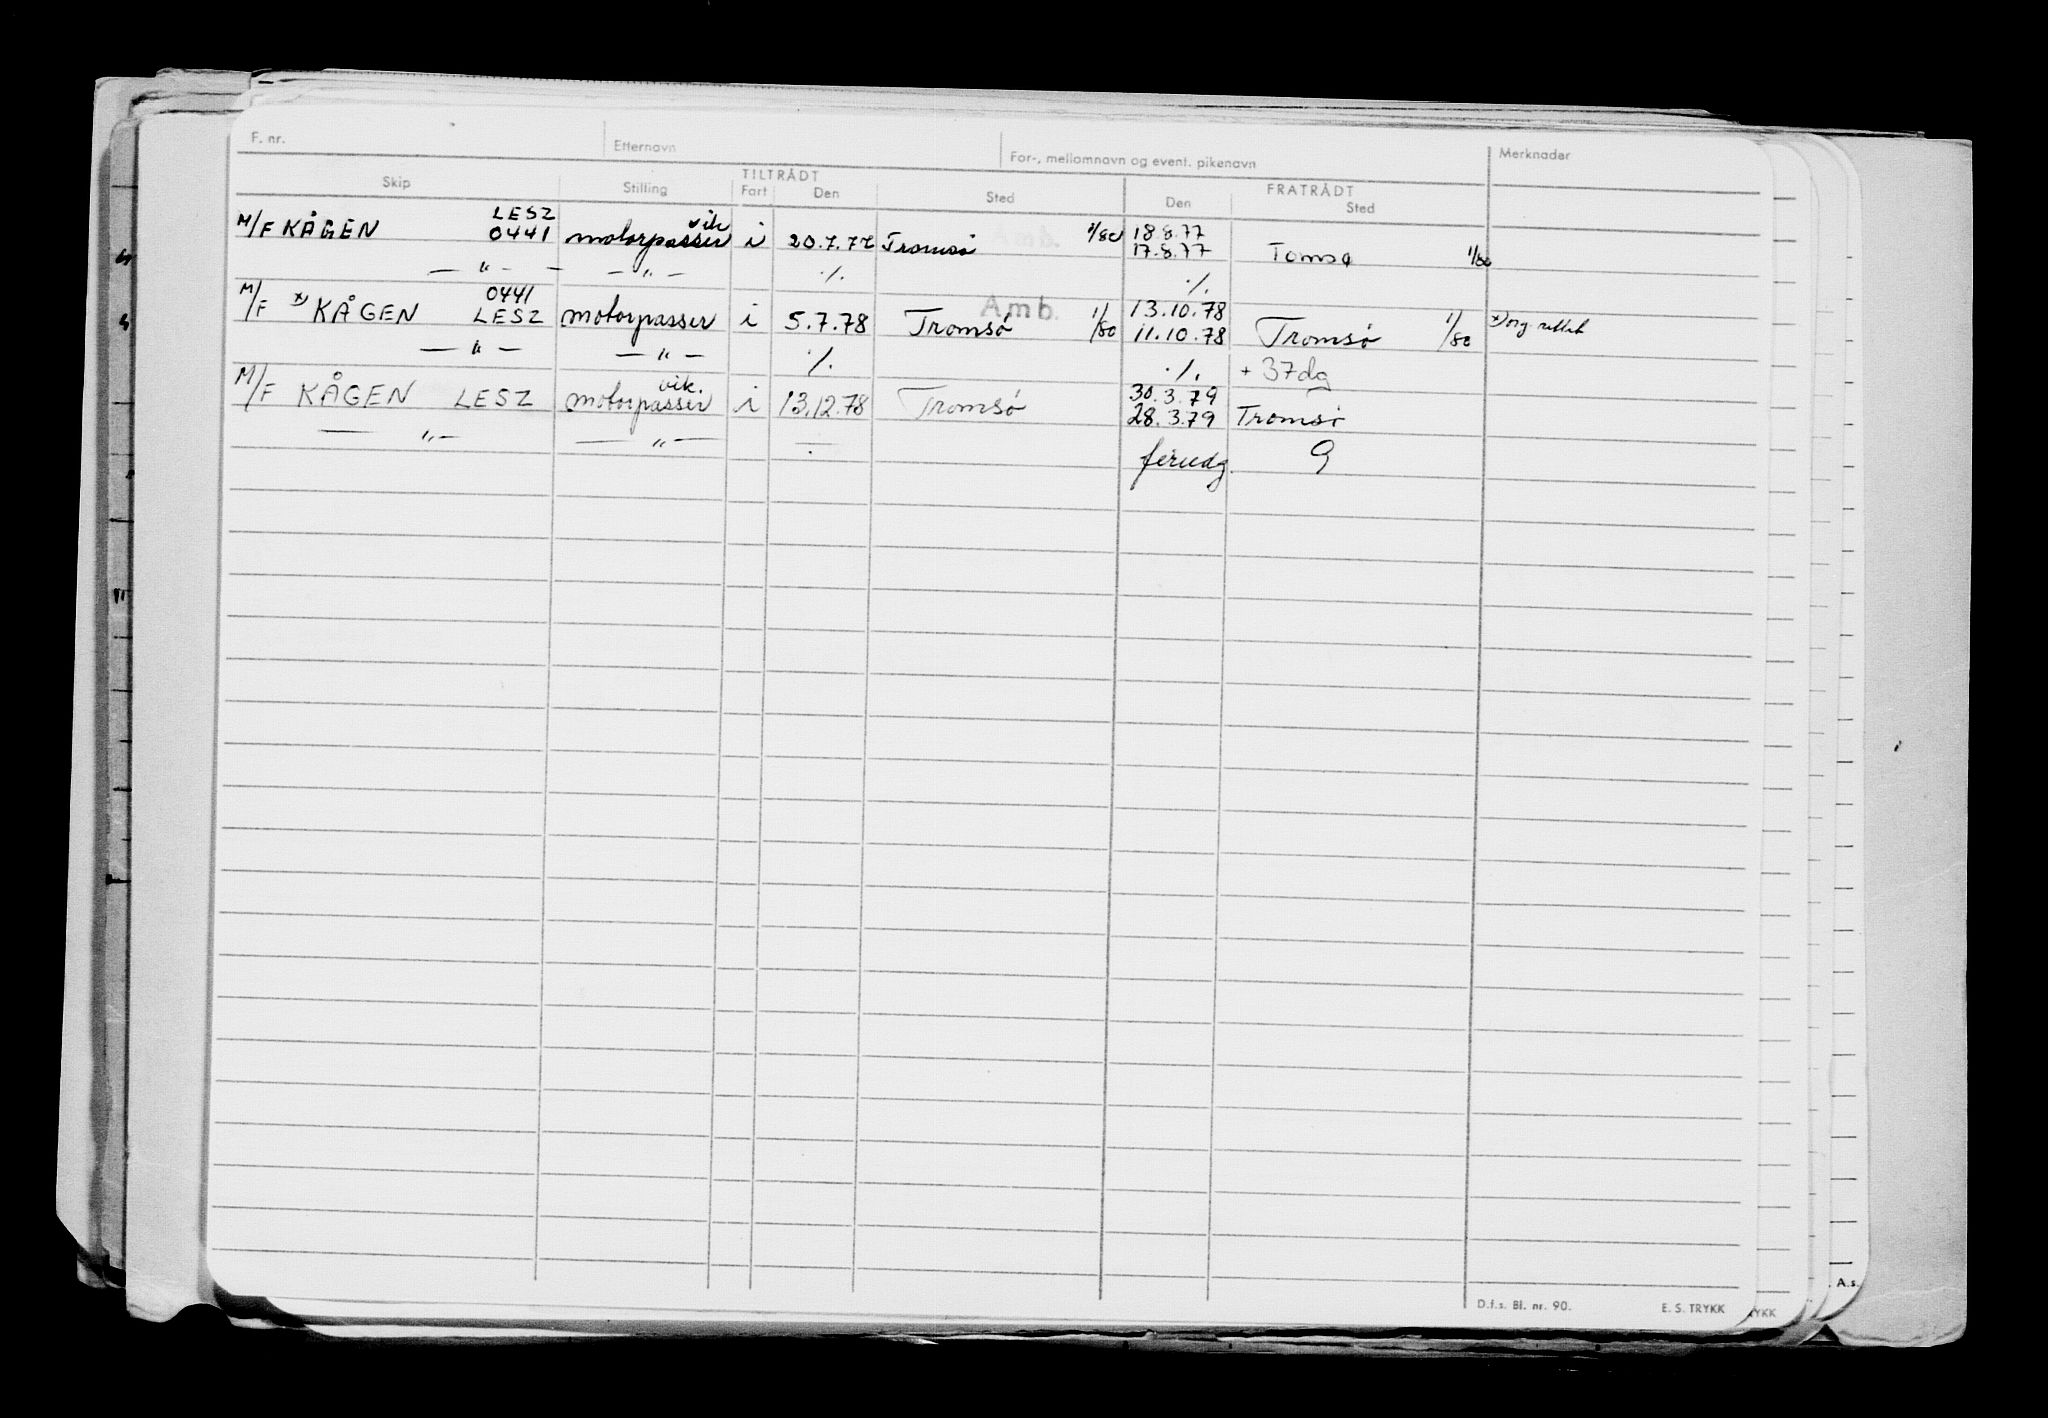 F. nr. Etternavn For-, mellomnavn og event. pikenavn Merknader
TILTRÅDT FRATRÅDT
Skip Stilling Fart Den Sted Den Sted
LESZ vik 18.8.77
M/F KÅGEN 0441 motorpasser i 20.7.77 Tromsø Amb. 1/80 17.8.77 Tomsø 1/80
— " — — — " — ./. ./.
0441 Amb. 13.10.78
M/F x) KÅGEN LESZ motorpasser i 5.7.78 Tromsø 1/80 11.10.78 Tromsø 1/80 x) org. rettet
— " — — " — ./. ./. + 37dg
vik. 30.3.79
M/F KÅGEN LESZ motorpasser i 13.12.78 Tromsø 28.3.79 Tromsø
— " — — " — ÷ feriedg. 9
D.f.s. Bl. nr. 90. E. S. TRYKK
YKK
. A.s.